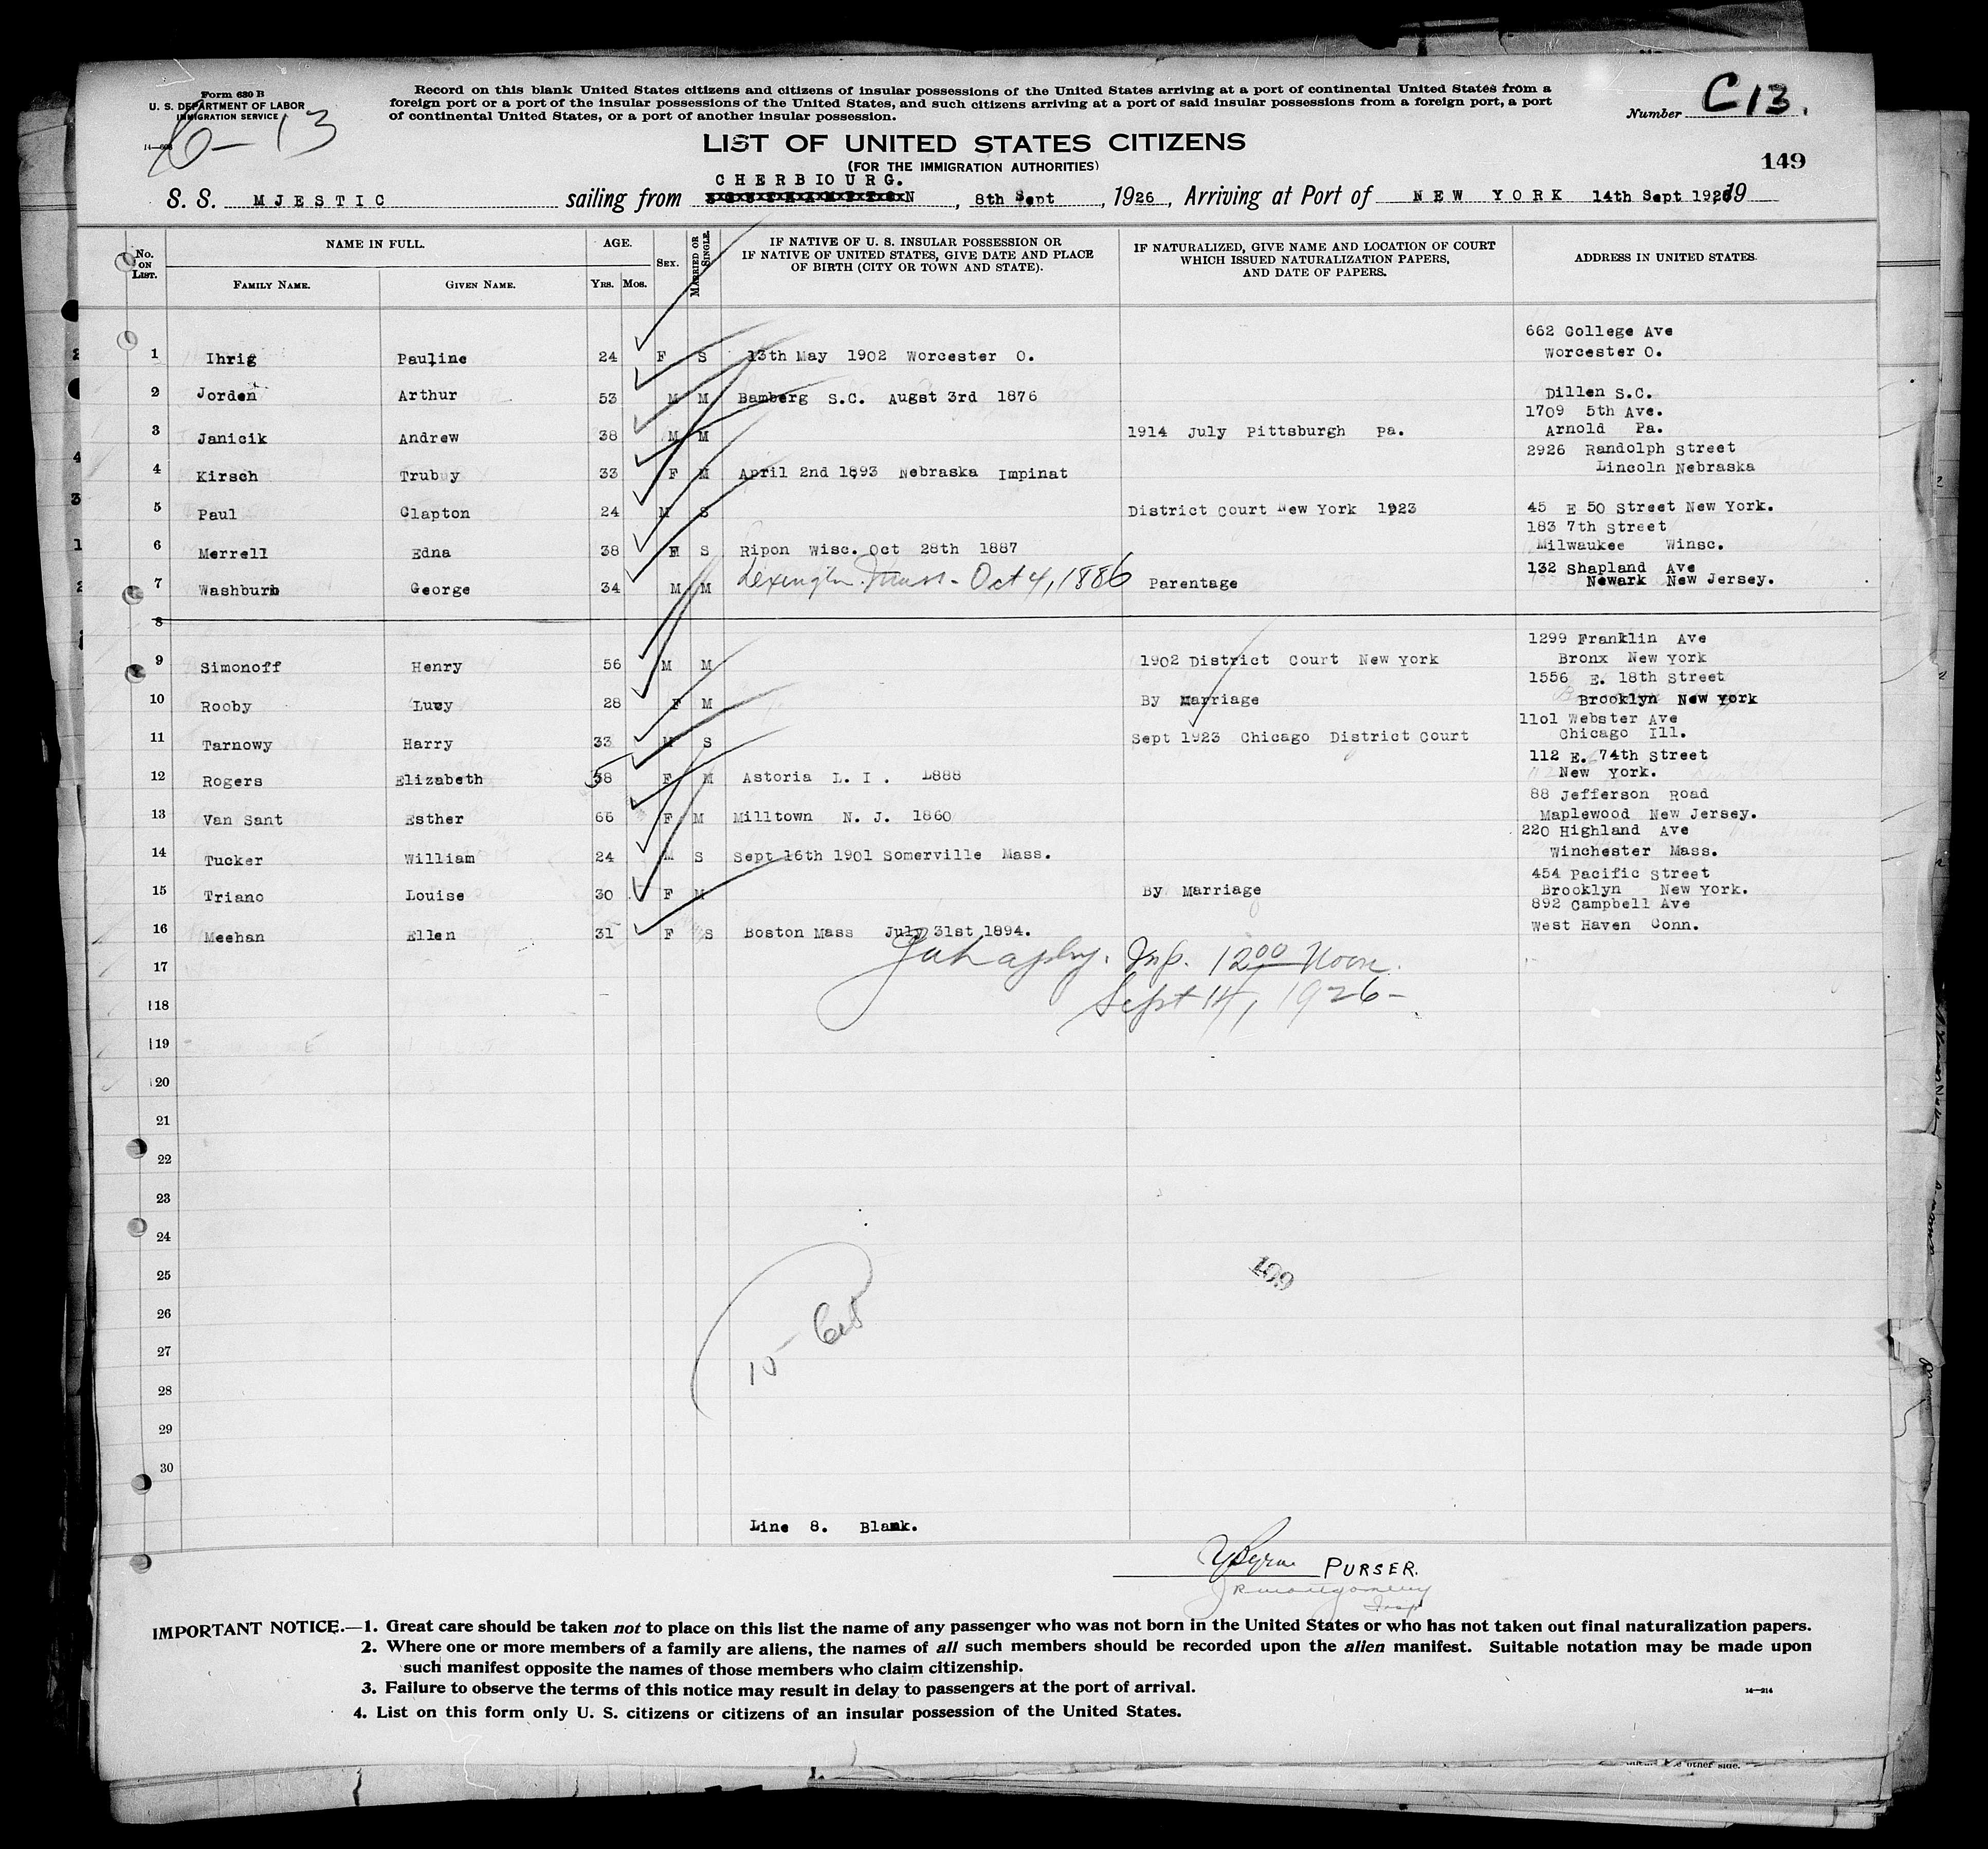 Form 630 B
U. S. DEPARTMENT OF LABOR
IMMIGRATION SERVICE
6-13
Record on this blank United States citizens and citizens of insular possessions of the United States arriving at a port of continental United States from a
foreign port or a port of the insular possessions of the United States, and such citizens arriving at a port of said insular possessions from a foreign port, a port
of continental United States, or a port of another insular possession.
Number C13.
LIST OF UNITED STATES CITIZENS
(FOR THE IMMIGRATION AUTHORITIES)
149
CHERBIOURG.
S. S. MJESTIC sailing from , 8th Sept , 1926 , Arriving at Port of NEW YORK 14th Sept 1926 19
No. ON LIST. NAME IN FULL. AGE. SEX. MARRIED OR SINGLE. IF NATIVE OF U. S. INSULAR POSSESSION OR IF NATIVE OF UNITED STATES, GIVE DATE AND PLACE OF BIRTH (CITY OR TOWN AND STATE). IF NATURALIZED, GIVE NAME AND LOCATION OF COURT WHICH ISSUED NATURALIZATION PAPERS, AND DATE OF PAPERS. ADDRESS IN UNITED STATES.
FAMILY NAME. GIVEN NAME. YRS. MOS.
662 College Ave
1 Ihrig Pauline 24 F S 13th May 1902 Worcester O. Worcester O.
2 Jorden Arthur 53 M M Bamberg S.C. Augst 3rd 1876 Dillen S.C.
1709 5th Ave.
3 Janicik Andrew 38 M M 1914 July Pittsburgh Pa. Arnold Pa.
2926 Randolph Street
4 Kirsch Trubuy 33 F M April 2nd 1893 Nebraska Impinat Lincoln Nebraska
5 Paul Clapton 24 M S District Court New York 1923 45 E 50 Street New York.
183 7th Street
6 Merrell Edna 38 F S Ripon Wisc. Oct 28th 1887 Milwaukee Winsc.
132 Shapland Ave
7 Washburn George 34 M M Lexington Mass - Oct 4, 1886 Parentage Newark New Jersey.
8
1299 Franklin Ave
9 Simonoff Henry 56 M M 1902 District Court New York Bronx New York
1556 E. 18th Street
10 Rooby Lucy 28 F M By Marriage Brooklyn New York
1101 Webster Ave
11 Tarnowy Harry 33 M S Sept 1923 Chicago District Court Chicago Ill.
112 E. 74th Street
12 Rogers Elizabeth 38 F M Astoria L. I. 1888 New York.
88 Jefferson Road
13 Van Sant Esther 66 F M Milltown N. J. 1860 Maplewood New Jersey.
220 Highland Ave
14 Tucker William 24 M S Sept 16th 1901 Somerville Mass. Winchester Mass.
454 Pacific Street
15 Triano Louise 30 F M By Marriage Brooklyn New York.
892 Campbell Ave
16 Meehan Ellen 31 F S Boston Mass July 31st 1894. West Haven Conn.
17 Insp. 12 00 Noon.
18 Sept 14, 1926-
19
20
21
22
23
24
25 109
26
27 10-
28
29
30
Line 8. Blank.
PURSER.
Insp
IMPORTANT NOTICE.—1. Great care should be taken not to place on this list the name of any passenger who was not born in the United States or who has not taken out final naturalization papers.
2. Where one or more members of a family are aliens, the names of all such members should be recorded upon the alien manifest. Suitable notation may be made upon
such manifest opposite the names of those members who claim citizenship.
3. Failure to observe the terms of this notice may result in delay to passengers at the port of arrival.
14—214
4. List on this form only U. S. citizens or citizens of an insular possession of the United States.
other side.